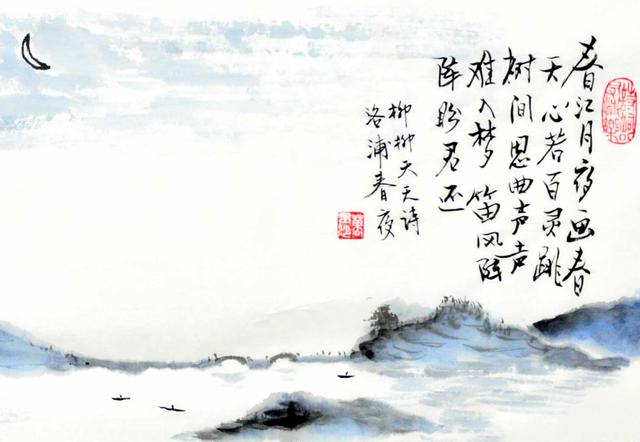 春江月夜画春
天心若百灵跳
树间思曲声声
难入梦笛风阵
阵盼君还
柳柳天天诗
洛浦春夜